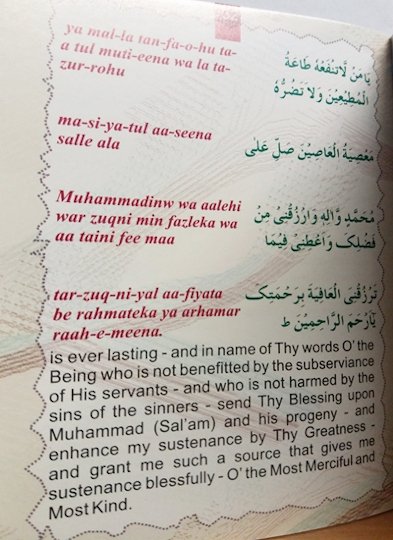 ya mal-la tan-fa-o-hu ta-
a tul muti-eena wa la ta-
zur-rohu
يَا مَنْ لَّاتَنْفَعُهٗ طَاعَةُ
الْمُطِيْعِيْنَ وَلَا تَضُرُّهٗ
ma-si-ya-tul aa-seena
salle ala
مَعْصِيَةُ الْعَاصِيْنَ صَلِّ عَلٰى
Muhammadinw wa aalehi
war zuqni min fazleka wa
aa taini fee maa
مُحَمَّدٍ وَّاٰلِهٖ وَارْزُقْنِىْ مِنْ
فَضْلِكَ وَاَعْطِنِىْ فِيْمَا
tar-zuq-ni-yal aa-fiyata
be rahmateka ya arhamar
raah-e-meena.
تَرْزُقْنِىَ الْعَافِيَةَ بِرَحْمَتِكَ
يَآاَرْحَمَ الرَّاحِمِيْنَ ط
is ever lasting - and in name of Thy words O' the
Being who is not benefitted by the subserviance
of His servants - and who is not harmed by the
sins of the sinners - send Thy Blessing upon
Muhammad (Sal'am) and his progeny - and
enhance my sustenance by Thy Greatness -
and grant me such a source that gives me
sustenance blessfully - O' the Most Merciful and
Most Kind.